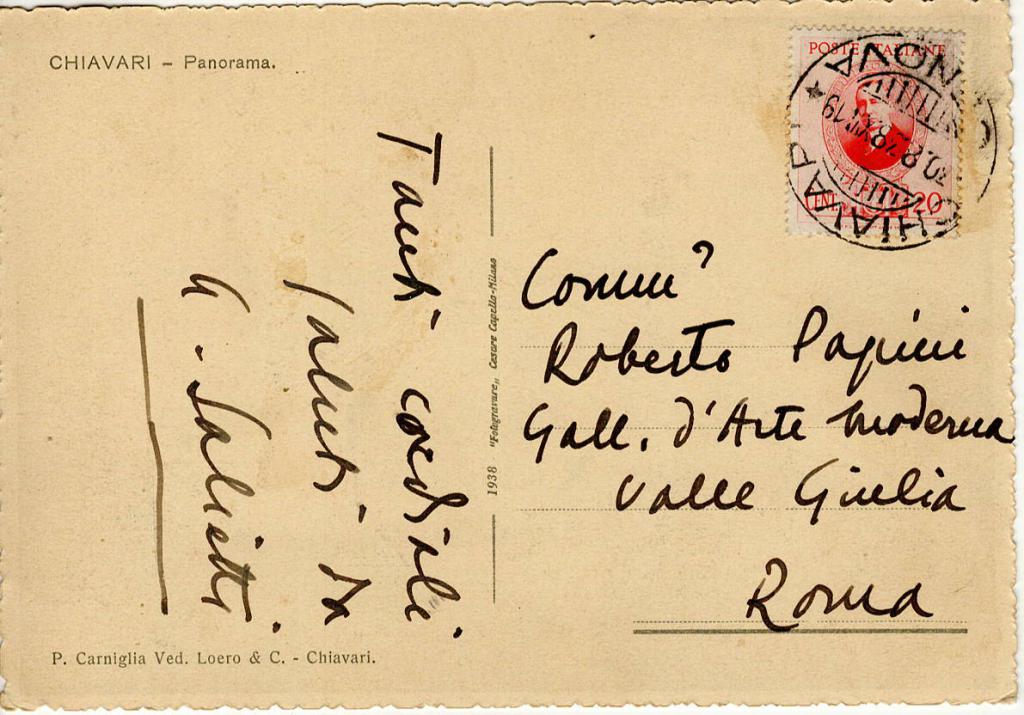 CHIAVARI – Panorama.
POSTE ITALIANE
CENT. 20
CHIAVARI
30.8.38 XVI 19
Tanti cordiali
saluti da
Salietti
1938 "Fotogravure„ Cesare Capello-Milano
Comm
Roberto Papini
Gall. d'Arte Moderna
Valle Giulia
Roma
P. Carniglia Ved. Loero & C. - Chiavari.